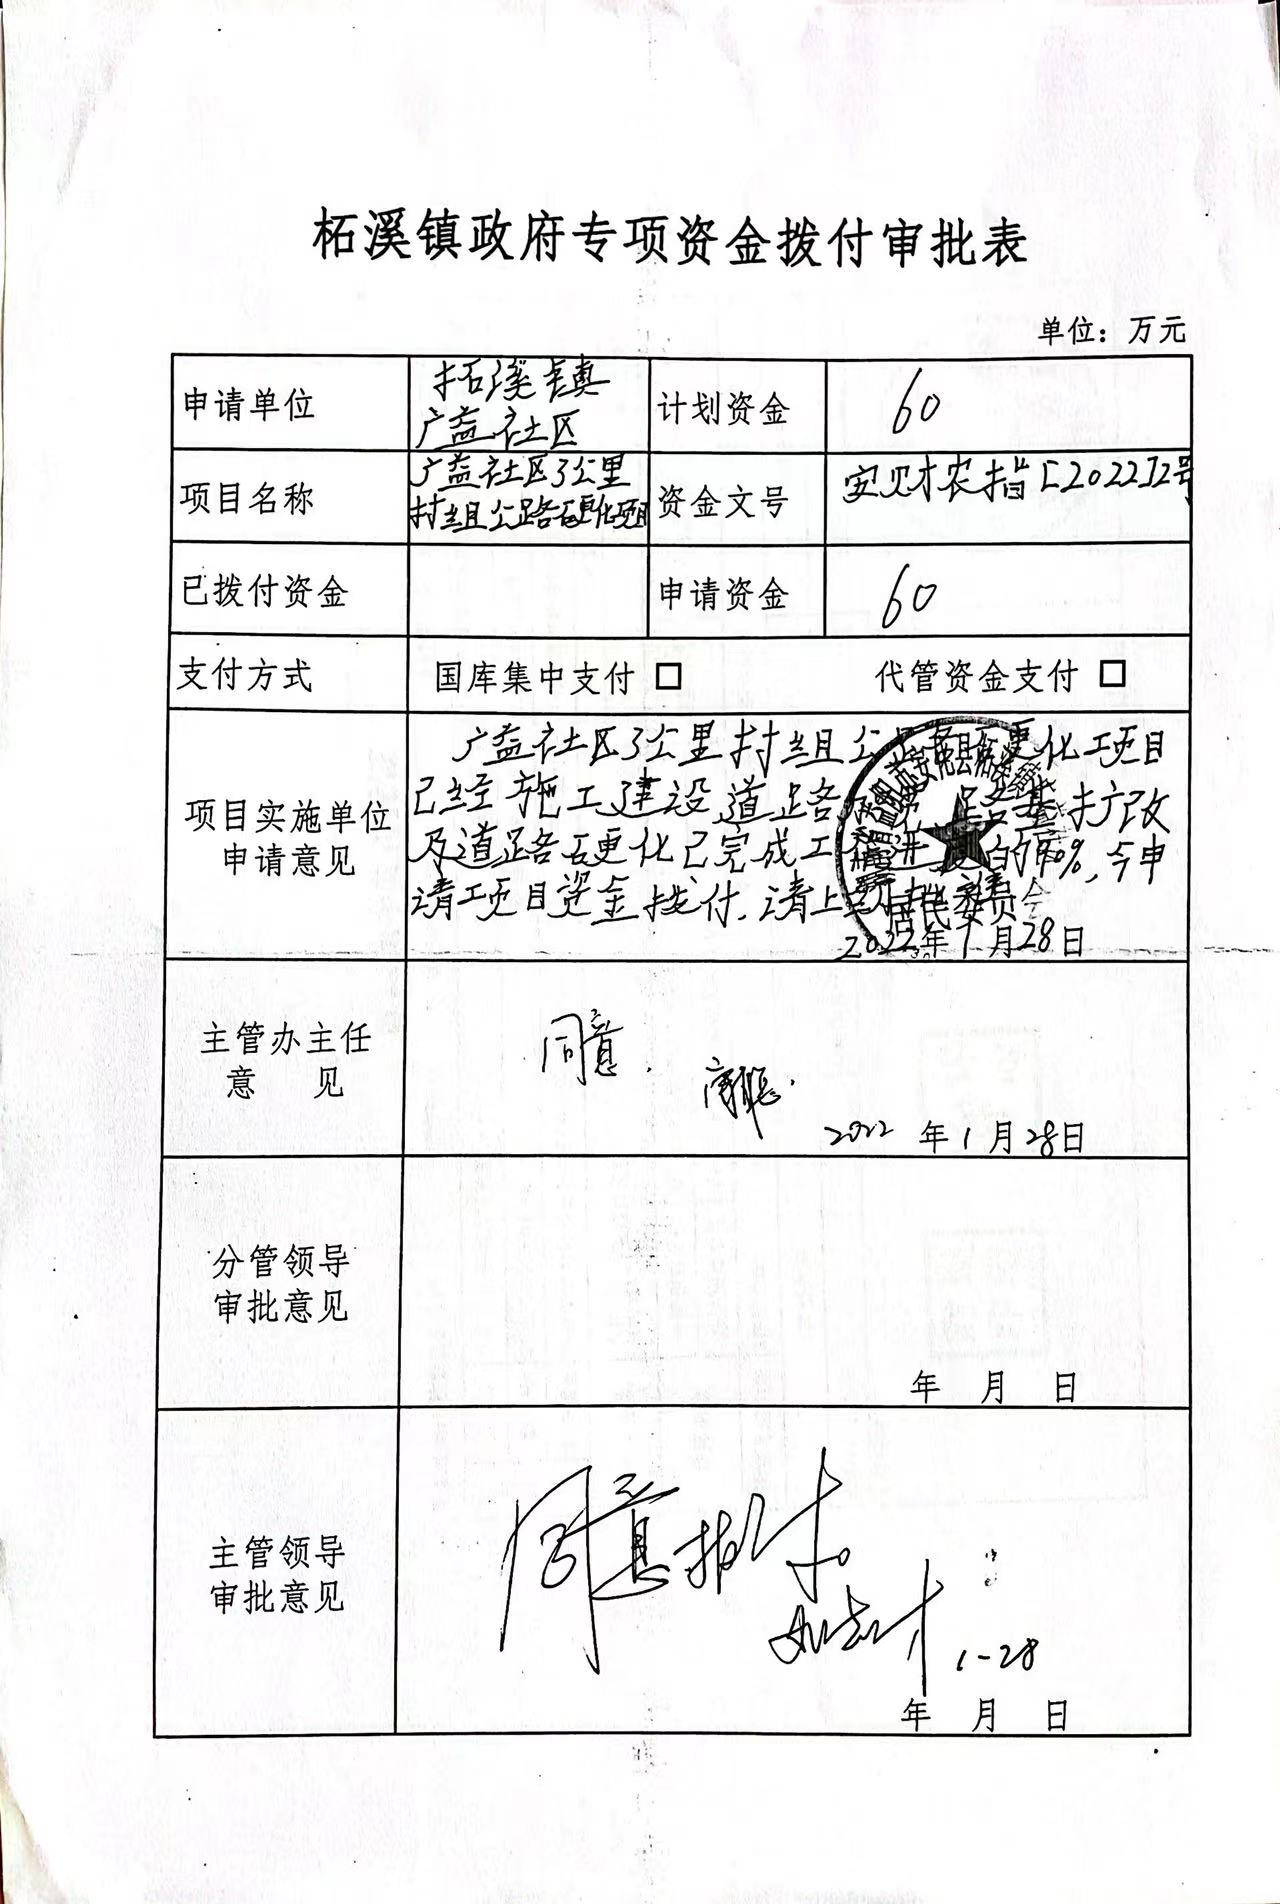 柘溪镇政府专项资金拨付审批表
单位：万元
申请单位
拓溪镇
广益社区
计划资金
60
项目名称
广益社区3公里
村组公路硬化项目
资金文号
安财农指[2022]2号
已拨付资金
申请资金
60
支付方式
国库集中支付 □
代管资金支付 □
项目实施单位
申请意见
广益社区3公里村组公路硬化项目
已经施工建设道路 路基扩改
及道路硬化已完成工程进度的90%,今申
请项目资金拨付,请上
居民委员会
2022年1月28日
主管办主任
意 见
同意.
2022年1月28日
分管领导
审批意见
年 月 日
主管领导
审批意见
同意拨付。
1-28
年 月 日